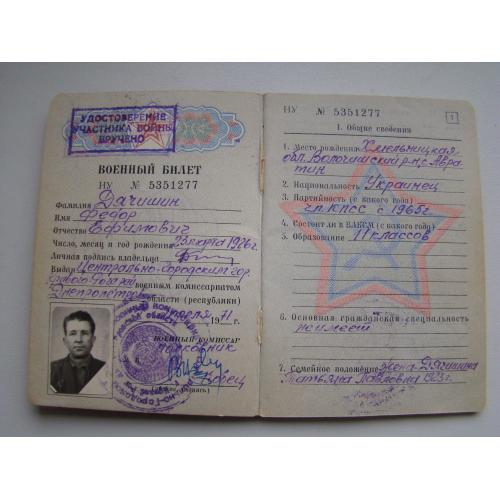 УДОСТОВЕРЕНИЕ
УЧАСТНИКА ВОЙНЫ
ВРУЧЕНО
ВОЕННЫЙ БИЛЕТ
НУ № 5351277
Фамилия Дячишин
Имя Федор
Отчество Ефимович
Число, месяц и год рождения 23 марта 1926 г.
Личная подпись владельца
Выдан Центрально-городским гор.
военным комиссариатом
Днепропетр. области (республики)
1971 г.
ВОЕННЫЙ КОМИССАР
полковник
Борец
НУ № 5351277
1
I. Общие сведения
1. Место рождения Хмельницкая
обл. Волочиский р-н, с. Авра
тин
2. Национальность Украинец
3. Партийность (с какого года)
чл. КПСС с 1965 г.
4. Состоит ли в ВЛКСМ (с какого года)
5. Образование 11 классов
6. Основная гражданская специальность
не имеет
7. Семейное положение жена-Дячишина
Татьяна Павловна 1923 г.